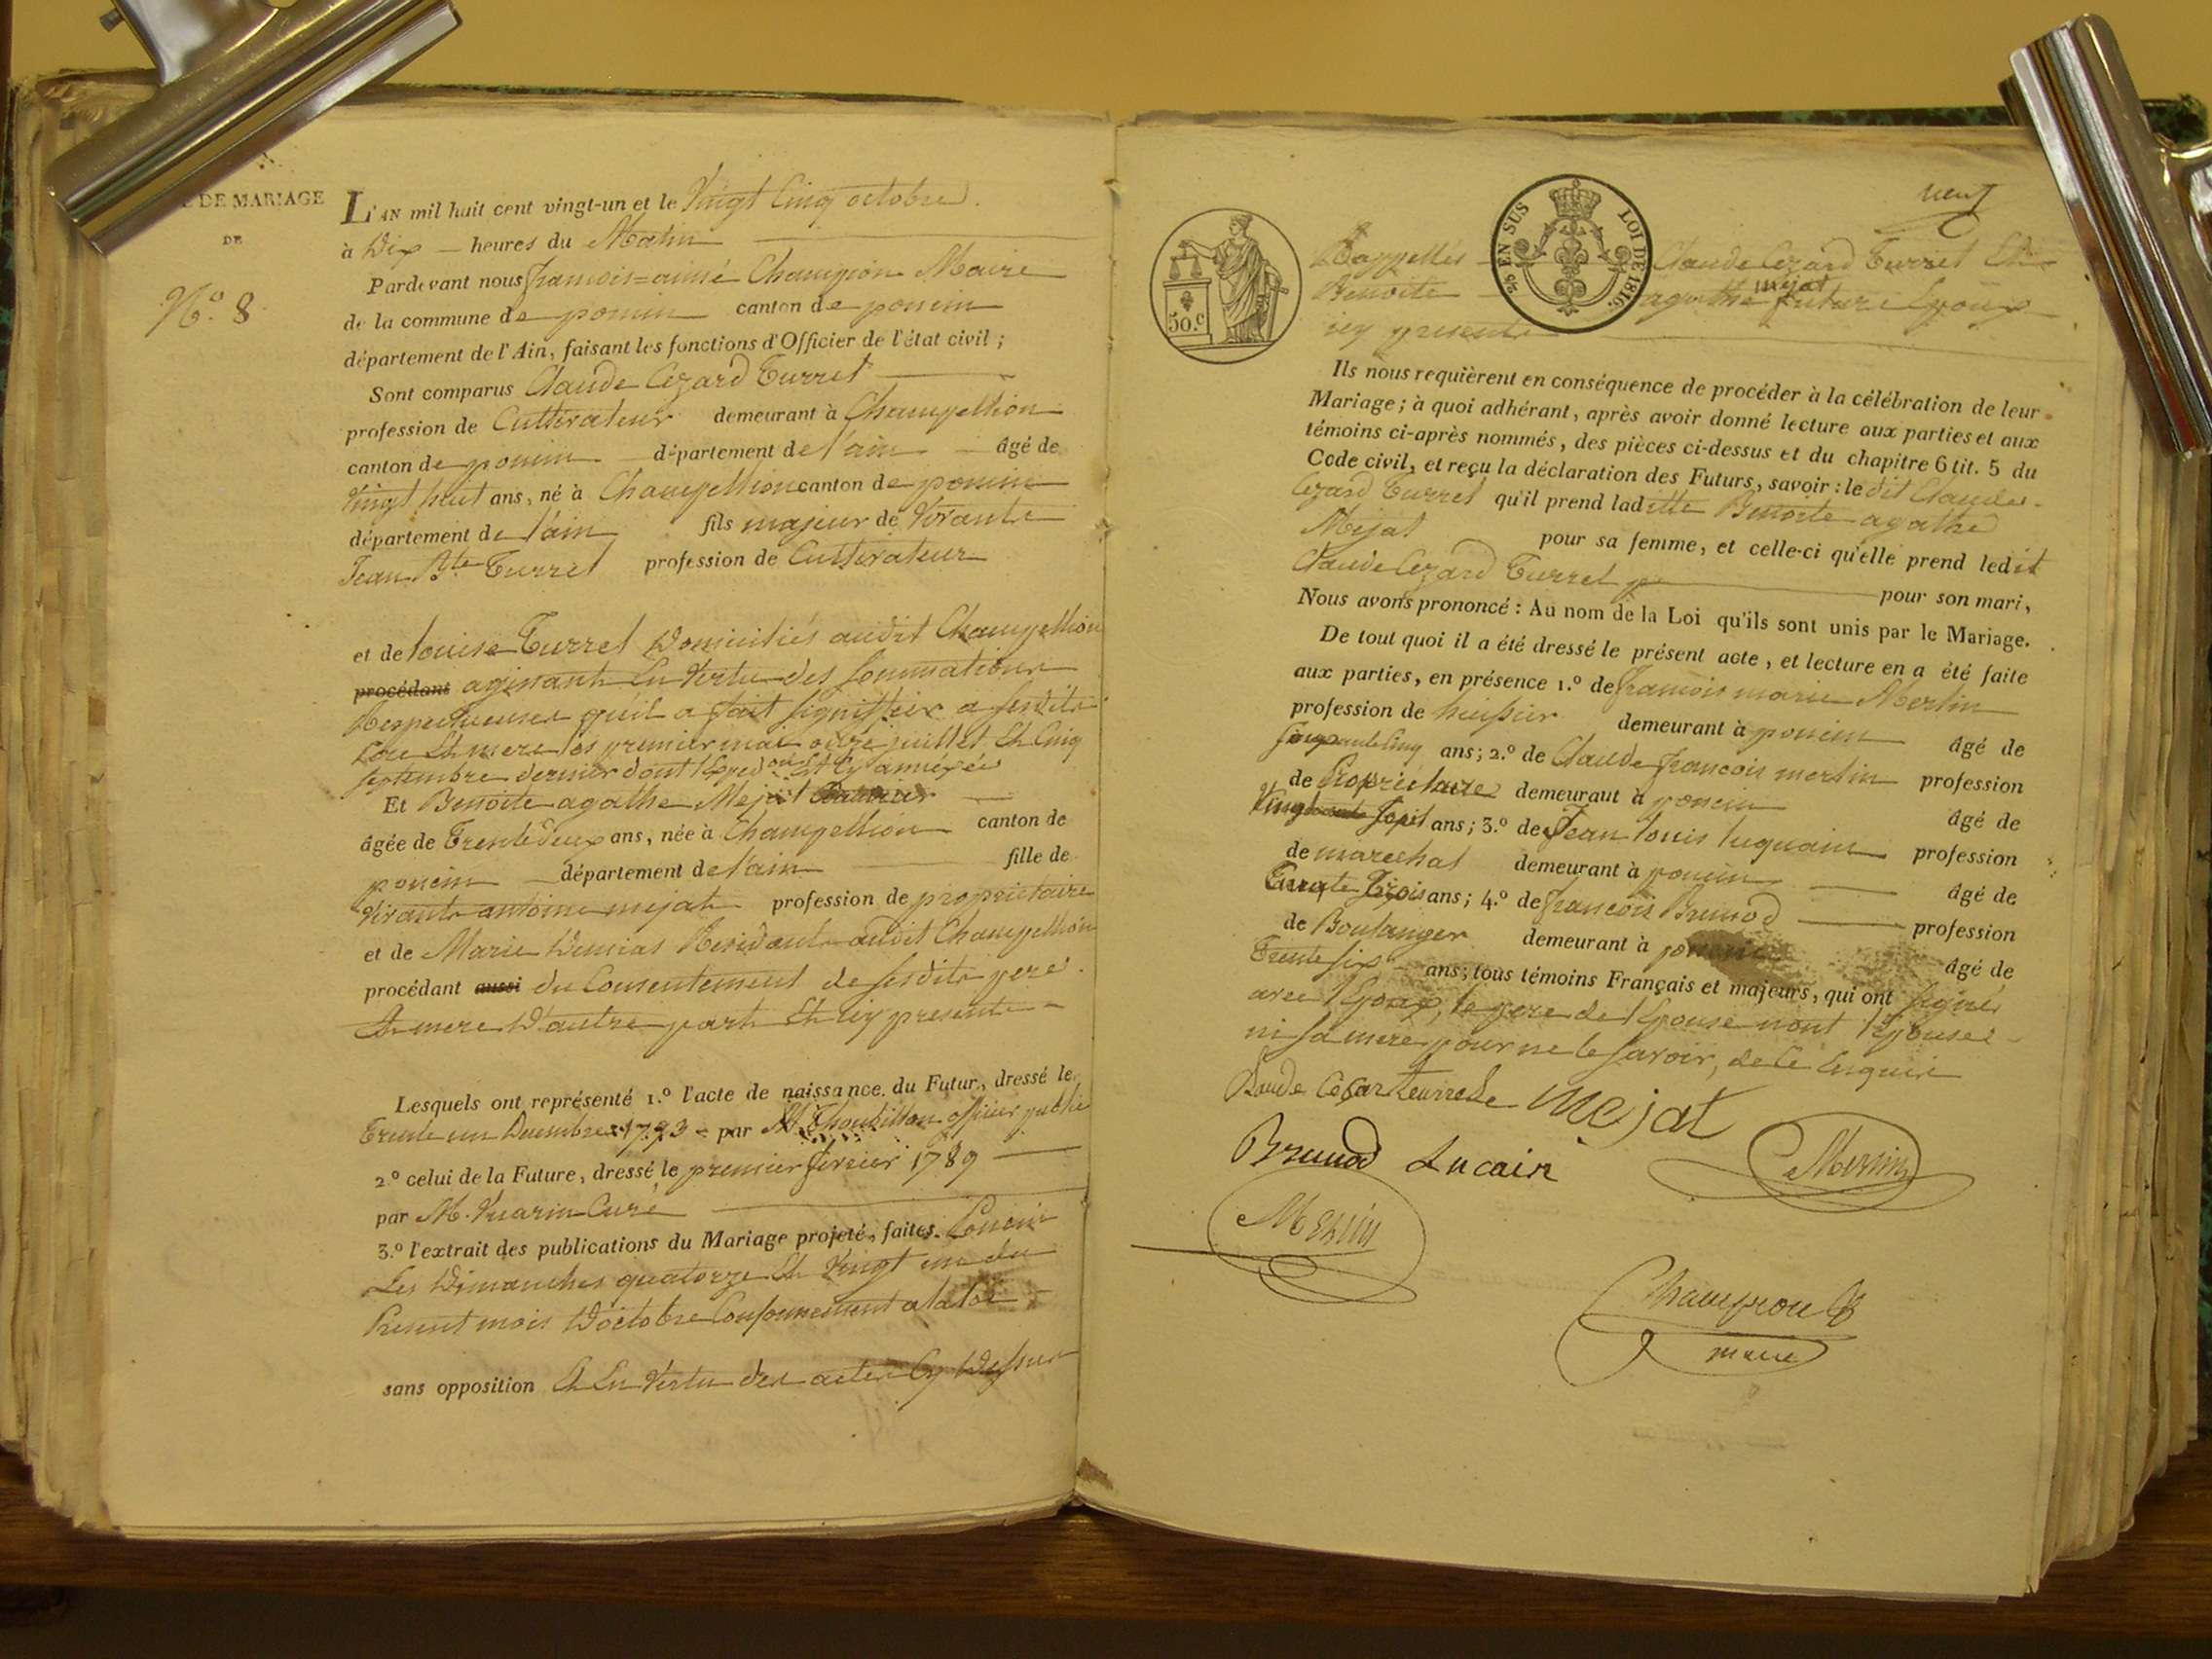 DE MARIAGE
DE
N.º 8
L'AN mil huit cent vingt-un et le Vingt Cinq octobre.
à Dix heures du Matin
Pardevant nous francois=aimé Champion Maire
de la commune de poncin canton de poncin
département de l'Ain, faisant les fonctions d'Officier de l'état civil ;
Sont comparus Claude Cezard Turrel
profession de Cultivateur demeurant à Champellion
canton de poncin département de l'ain âgé de
Vingt huit ans, né à Champellion canton de poncin
département de l'ain fils majeur de Vivants
Jean Bte Turrel profession de Cultivateur
et de louise Turrel Domiciliés audit Champellion
procédant agissant En Vertu des Sommations
Respectueuses quil a fait signiffier a sesdits
pere Et mere les premier mai onze juillet Et Cinq
septembre dernier dont l'Exped.on Est Cy annéxée
Et Benoite agathe Mejat
âgée de Trente deux ans, née à Champellion canton de
poncin département de l'ain fille de
Vivants antoine mejat profession de proprietaire
et de Marie Demias Residants audit Champellion
procédant aussi du Consentement de sesdits pere
Et mere D'autre part Et icy presents
Lesquels ont représenté 1.º l'acte de naissance du Futur, dressé le
Trente un Decembre 1793 par M. Thoubillon officier public
2.º celui de la Future, dressé le premier fevrier 1789
par M. Vuarin Curé
3.º l'extrait des publications du Mariage projeté, faites Poncin
Les Dimanches quatorze Et Vingt un du
Present mois D'octobre Conformement a la loi
sans opposition Et En Vertu des actes Cy Dessus
neuf
50.c
2/5 EN SUS LOI DE 1816.
Rappellés Claude Cezard Turrel Et
Benoite agathe mejat future Epoux
icy presents
Ils nous requièrent en conséquence de procéder à la célébration de leur
Mariage ; à quoi adhérant, après avoir donné lecture aux parties et aux
témoins ci-après nommés, des pièces ci-dessus et du chapitre 6 tit. 5 du
Code civil, et reçu la déclaration des Futurs, savoir : le dit Claude
Cezard Turrel qu'il prend laditte Benoite agathe
Mejat pour sa femme, et celle-ci qu'elle prend ledit
Claude Cezard Turrel pour son mari,
Nous avons prononcé : Au nom de la Loi qu'ils sont unis par le Mariage.
De tout quoi il a été dressé le présent acte, et lecture en a été faite
aux parties, en présence 1.º de francois marie Merlin
profession de huissier demeurant à poncin âgé de
Cinq ans ; 2.º de Claude francois merlin profession
de Proprietaire demeuraut à poncin âgé de
Vingt Sept ans ; 3.º de Jean louis luquain profession
de marechal demeurant à poncin âgé de
Trente Trois ans ; 4.º de francois Brunod profession
de Boulanger demeurant à poncin âgé de
Trente six ans ; tous témoins Français et majeurs, qui ont signé
avec l'Epoux, le pere de l'Epouse nont l'Epouse
ni sa mere pour ne le savoir, de Ce Enquis
Claude Cesar Mejat
Brunod Lucain Merlin
Merlin
Champion
maire